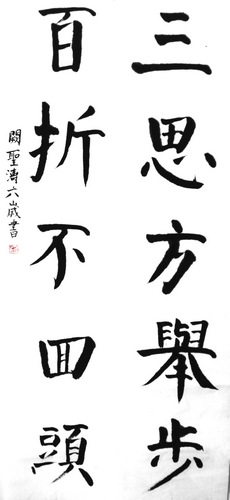 三思方舉步
百折不回頭
闞聖濤六歲書